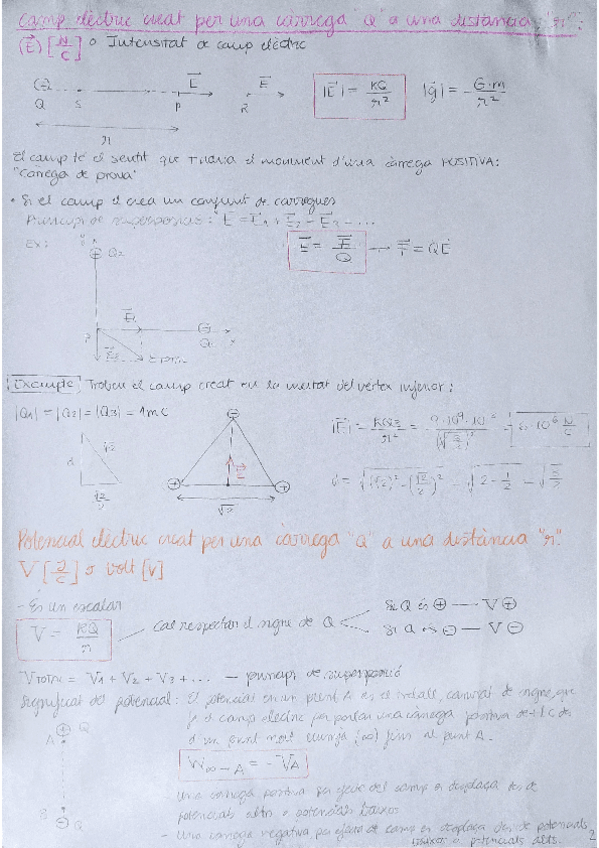 Camp elèctric creat per una càrrega "Q" a una distància "r":
(E⃗) [N/C] o Intensitat de camp elèctric
Q S P E⃗ R E⃗ |E⃗| = KQ/r² |g⃗| = -G·m/r²
r
El camp té el sentit que tindria el moviment d'una càrrega POSITIVA:
"Càrrega de prova"
• Si el camp el crea un conjunt de càrregues
Principi de superposició: E⃗ = E⃗₁ + E⃗₂
Ex: ⊕ Q₂ E⃗ = F⃗/Q → F⃗ = QE⃗
Exemple Trobeu el camp creat en la meitat del vèrtex inferior:
|Q₁| = |Q₂| = |Q₃| = 1mC
√2
√2/2
E⃗
√2
Potencial elèctric creat per una càrrega "Q" a una distància "r".
V [J/C] o volt [V]
- És un escalar
V = KQ/r Cal respectar el signe de Q
Si Q és ⊕ — V ⊕
Si Q és ⊖ — V ⊖
V TOTAL = V₁ + V₂ + V₃ + ... — principi de superposició
Significat del potencial: El potencial en un punt A és el treball, canviat de signe, que
fa el camp elèctric per portar una càrrega positiva de 1C des
d'un punt molt llunyà (∞) fins al punt A.
A ⊕ Q
W∞→A = -VA
Una càrrega positiva per efecte del camp es desplaça des de
potencials alts a potencials baixos
B ⊖ Q
- Una càrrega negativa per efecte de camp es desplaça des de potencials
baixos a potencials alts.
2